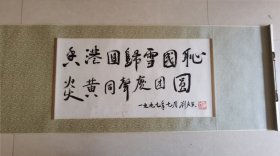 香港回歸雪國恥
炎黄同聲慶团圓
一九九七年七月